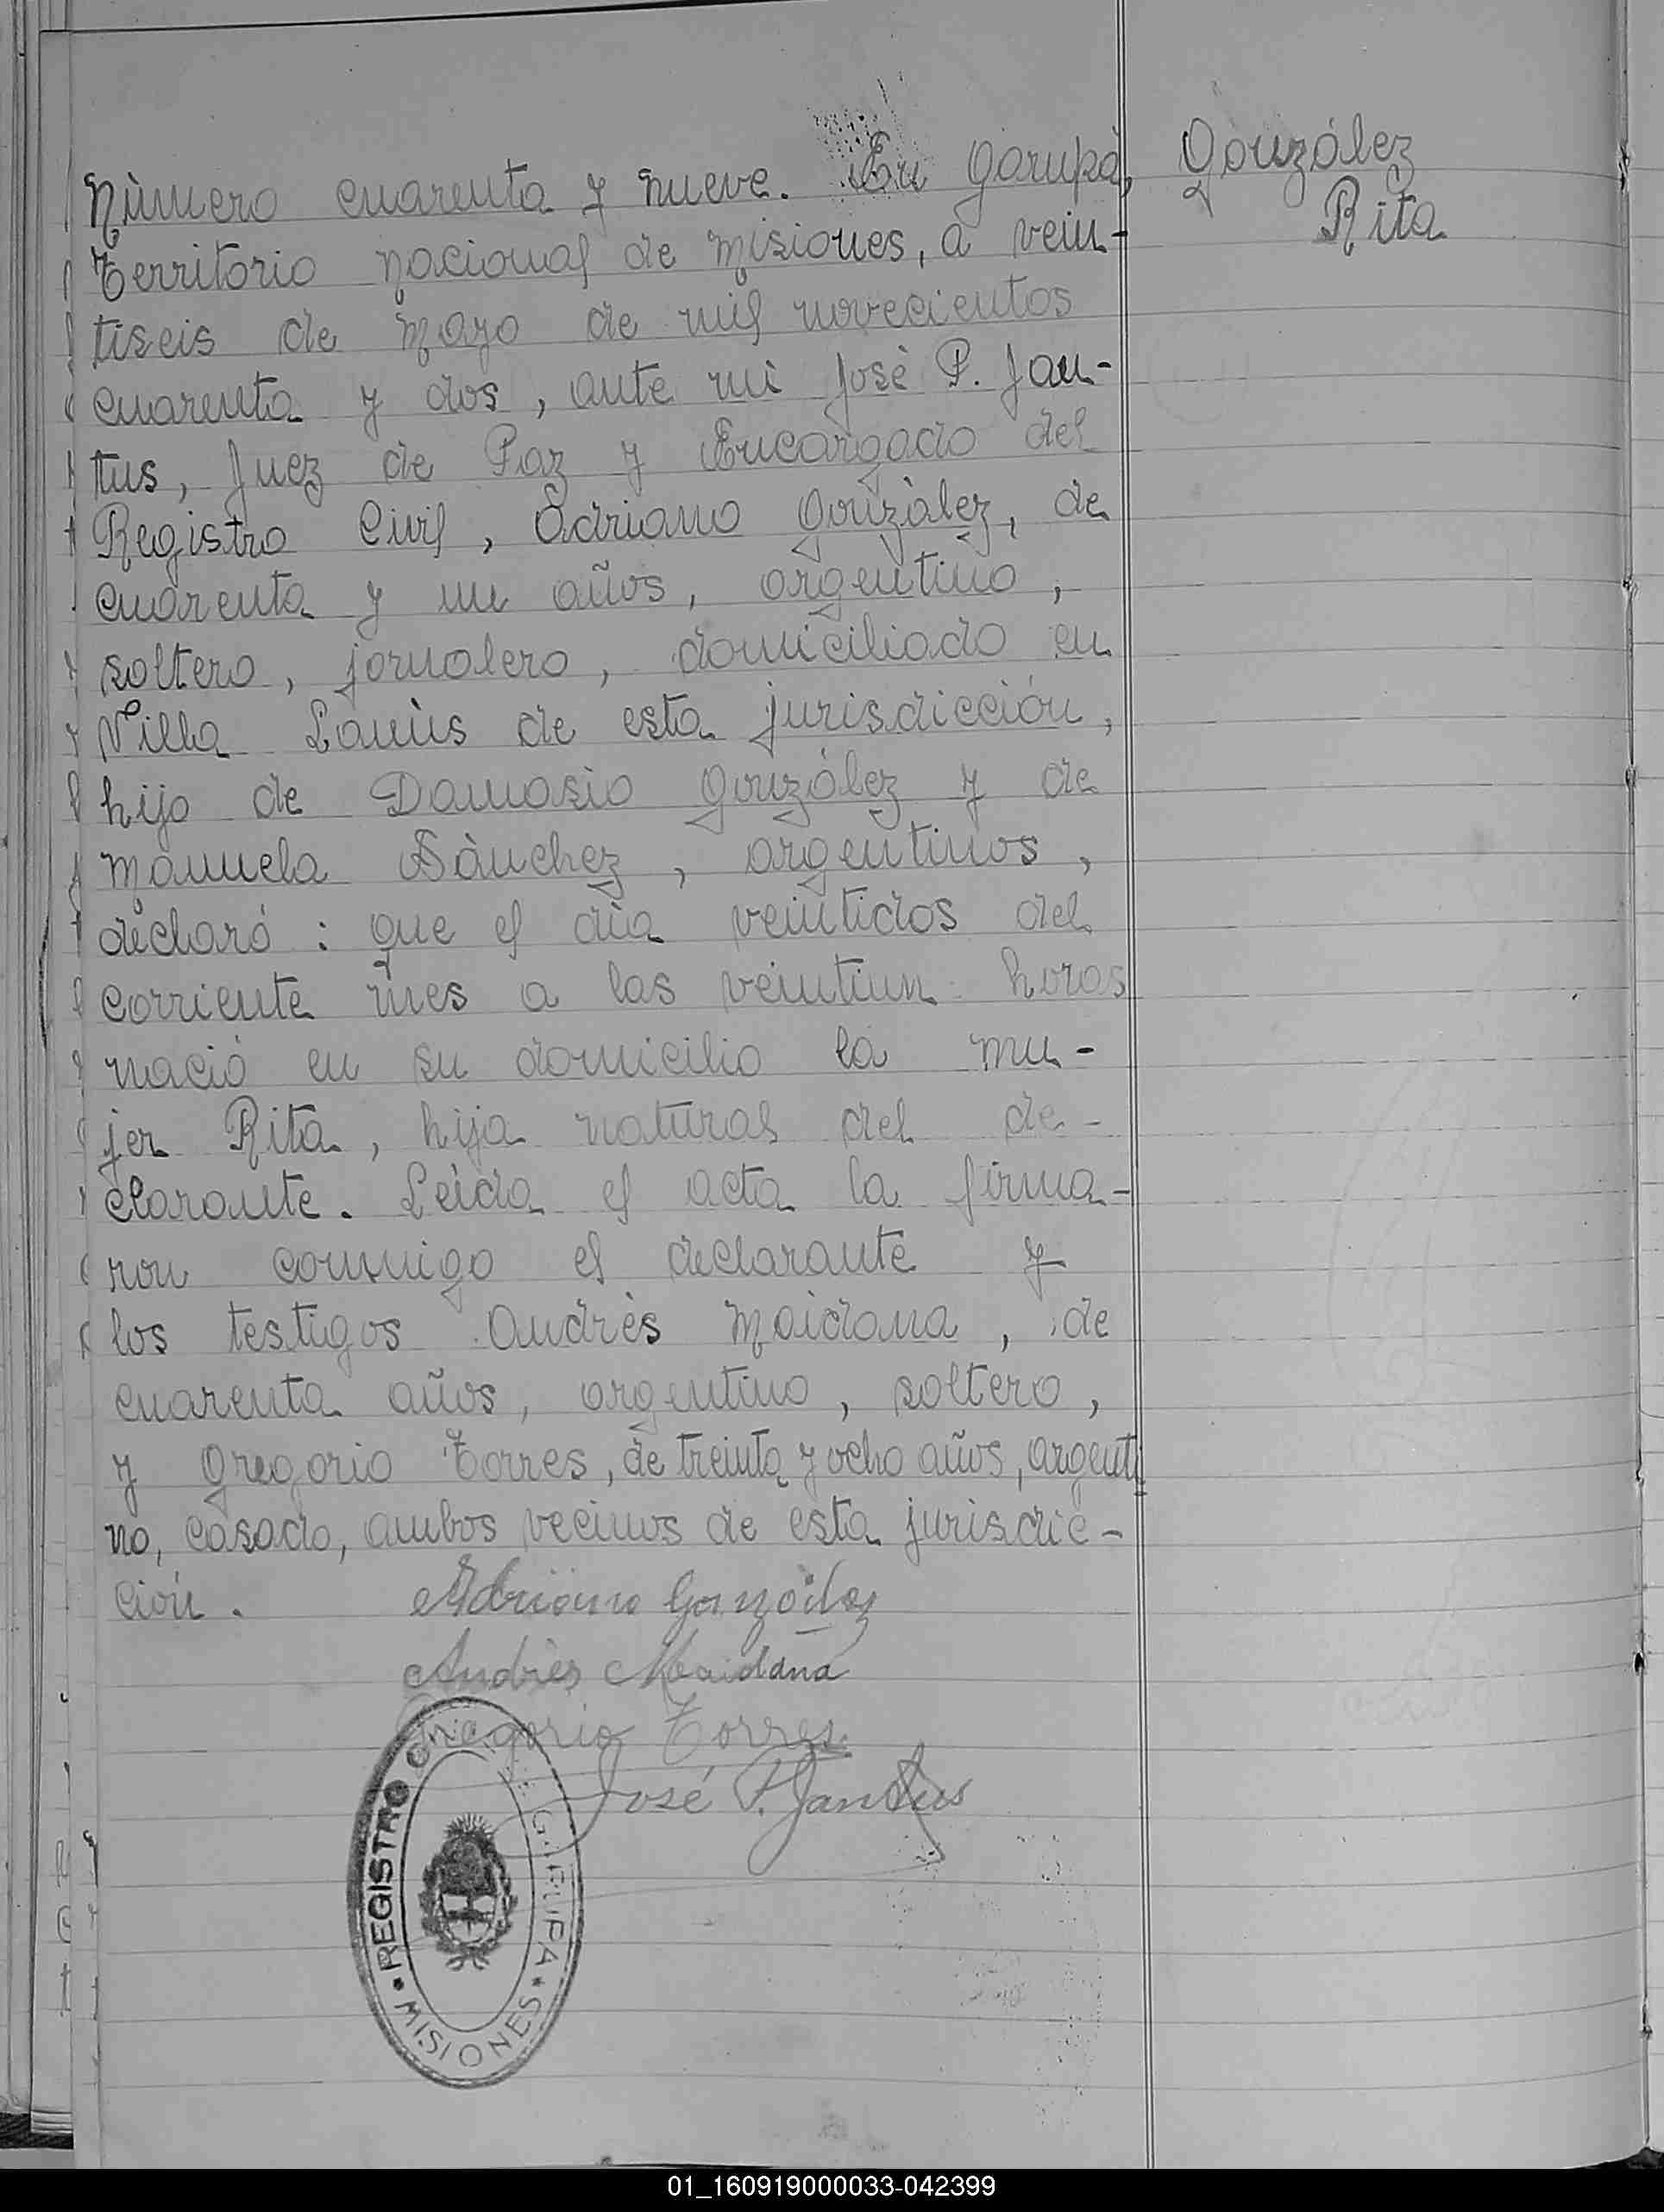 González
Rita
Número cuarenta y nueve. En Garupá,
Territorio nacional de Misiones, a vein-
tiseis de Mayo de mil novecientos
cuarenta y dos, ante mí José P. Jan-
tus, Juez de Paz y Encargado del
Registro Civil, Adriano González, de
cuarenta y un años, argentino,
soltero, jornalero, domiciliado en
Villa Lanús de esta jurisdicción,
hijo de Damasio González y de
Manuela Sánchez, argentinos,
declaró: que el día veintidos del
corriente mes a las veintiun horas
nació en su domicilio la mu-
jer Rita, hija natural del de-
clarante. Leída el acta la firma-
ron conmigo el declarante y
los testigos Andrés Maidana, de
cuarenta años, argentino, soltero,
y Gregorio Torres, de treinta y ocho años, argenti
no, casado, ambos vecinos de esta jurisdic-
ción.
Adriano González
Andrés Maidana
Gregorio Torres
José P. Jantus
REGISTRO CIVIL DE GARUPA
MISIONES
01_160919000033-042399